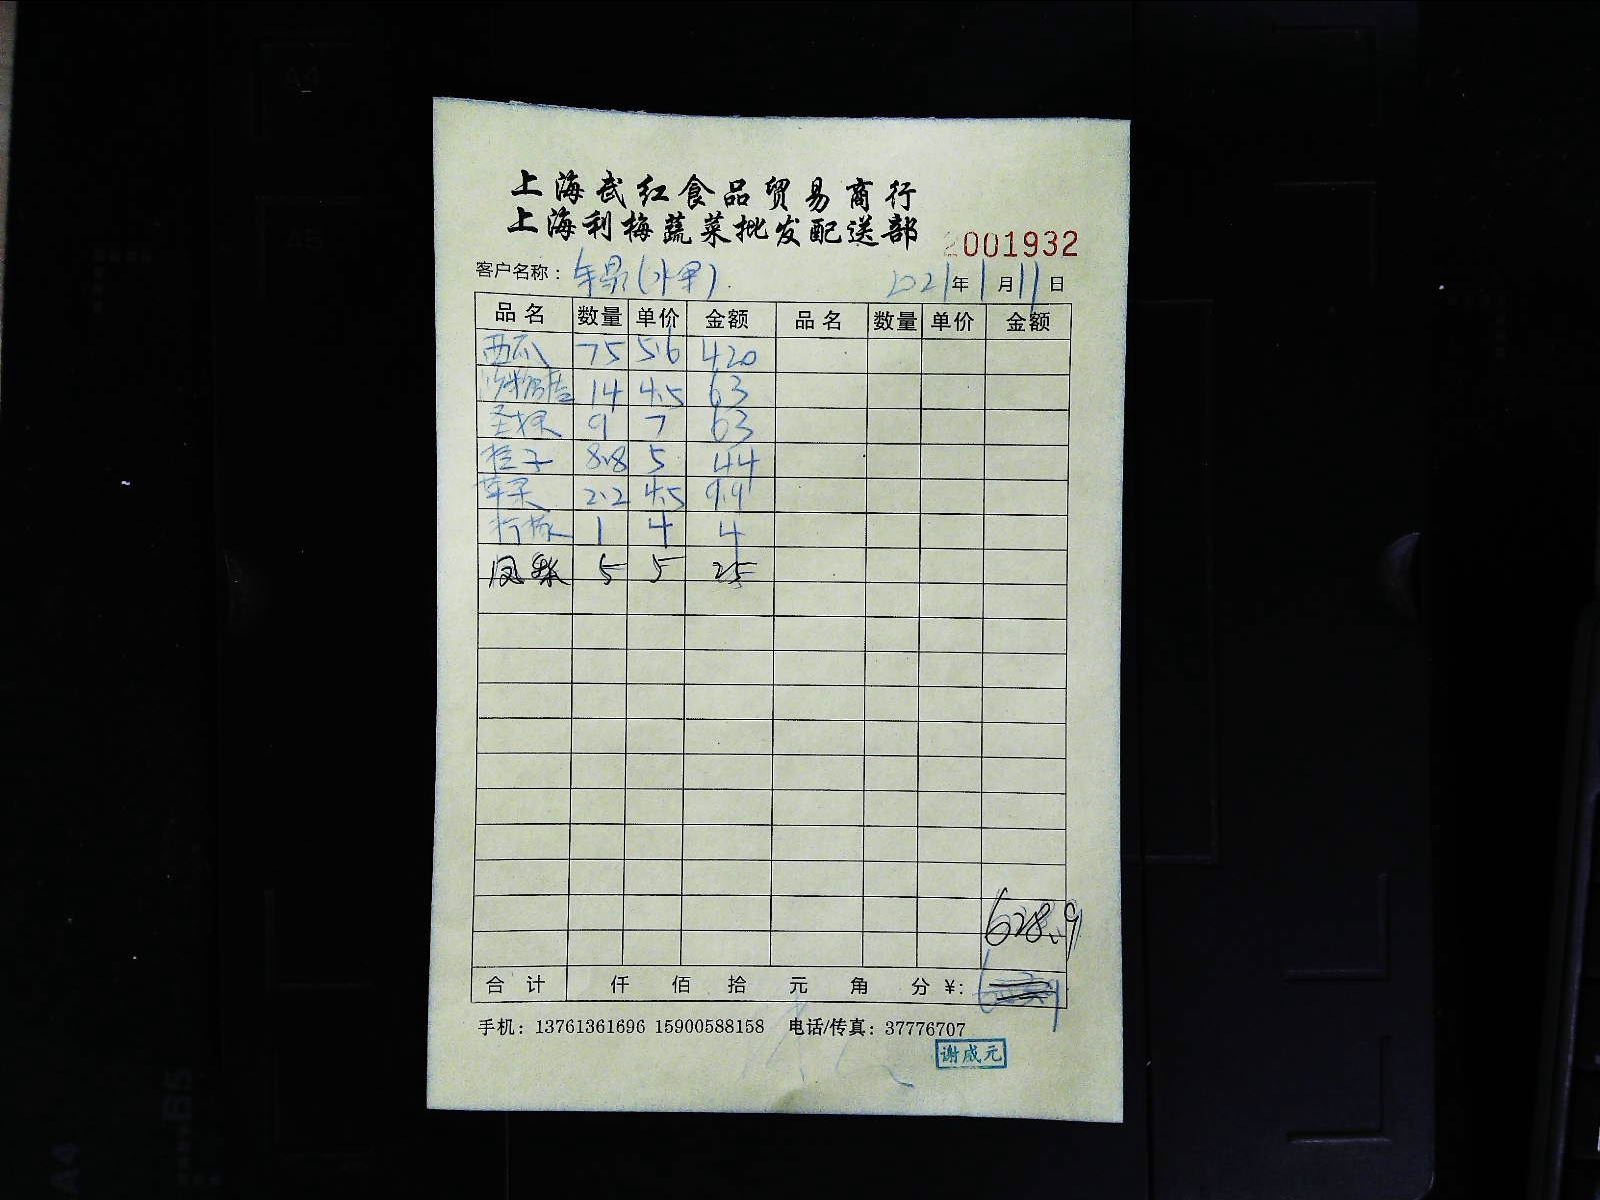 上海武红食品贸易商行
上海利梅蔬菜批发配送部
2001932
客户名称： (水果) 2021年1月11日
品名 数量 单价 金额 品名 数量 单价 金额
西瓜 75 5.6 420
14 4.5 63
圣女果 9 7 63
桔子 8.8 5 44
苹果 2.2 4.5 9.9
柠檬 1 4 4
凤梨 5 5 25
628.9
合计 仟 佰 拾 元 角 分 ¥:
手机：13761361696 15900588158 电话/传真：37776707
谢成元